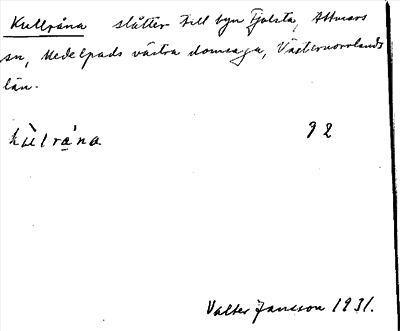 Kullråna slåtter till byn Fjolsta, Attmars
sn, Medelpads västra domsaga, Västernorrlands
län.
kùlrána. 92
Valter Jansson 1931.